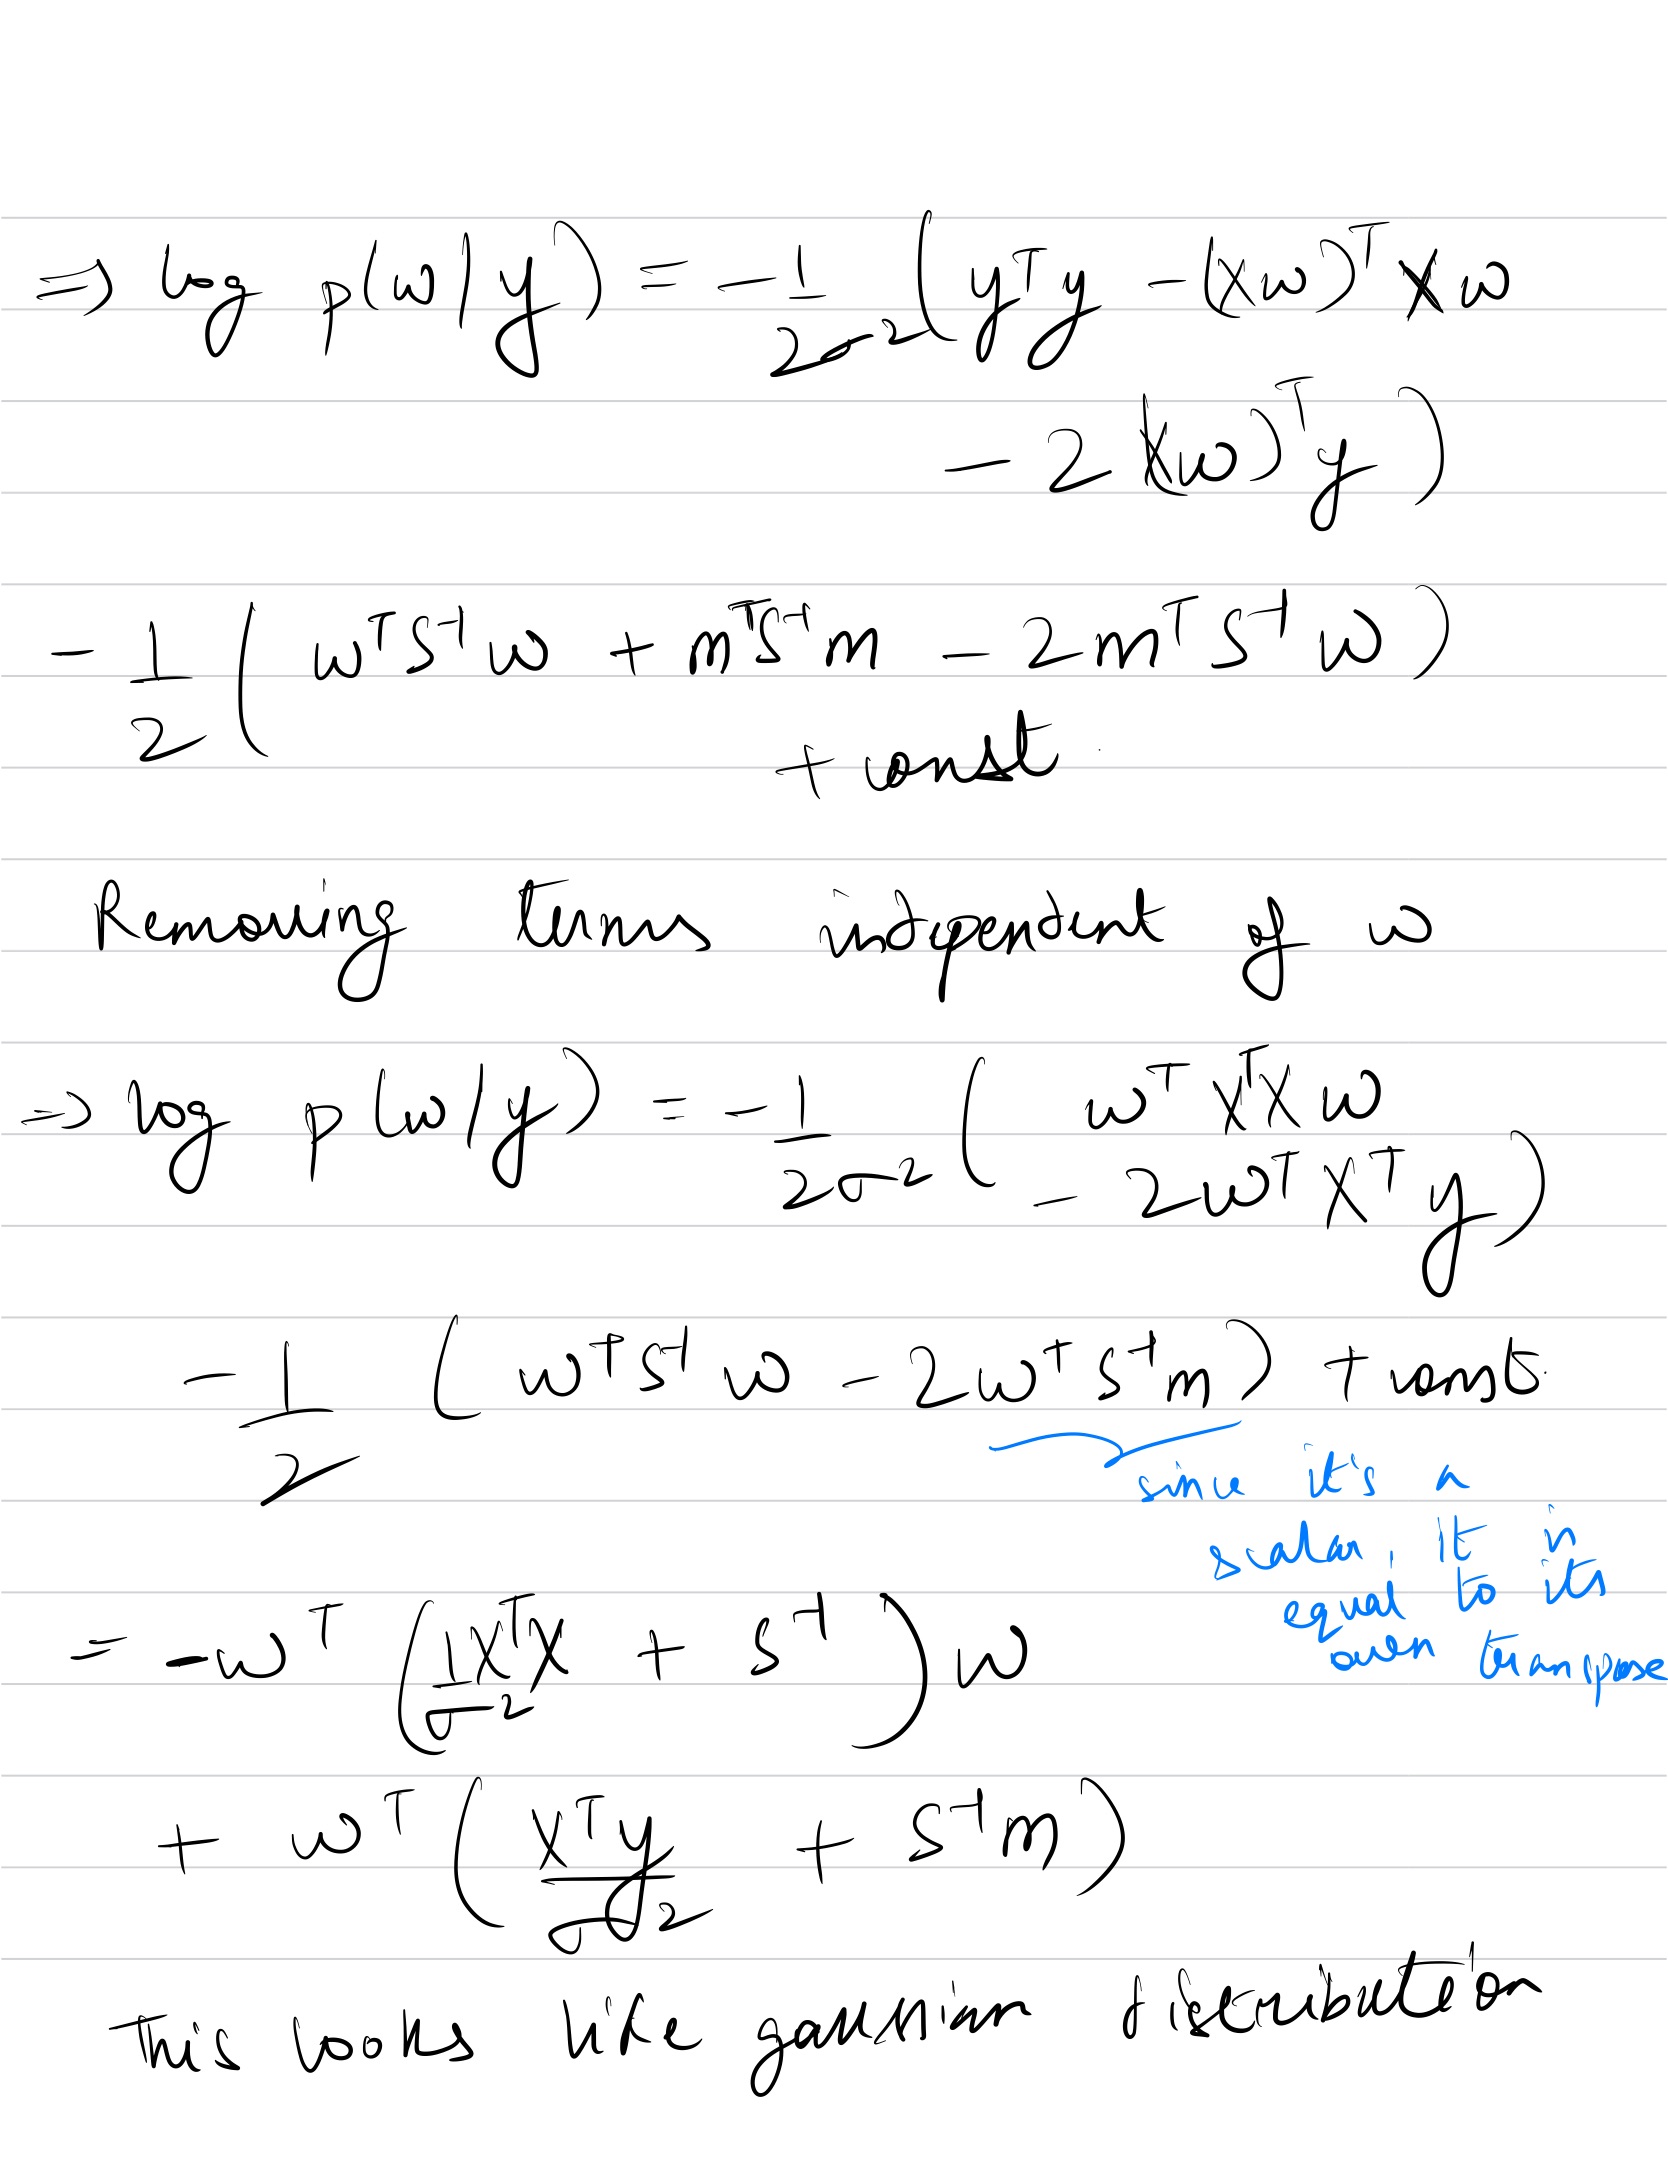 ⇒ log p(w/y) = -1/2σ² (yᵀy - (Xw)ᵀXw
- 2(Xw)ᵀy)
- 1/2 (wᵀS⁻¹w + mᵀS⁻¹m - 2mᵀS⁻¹w)
+ const.
Removing terms independent of w
⇒ log p(w/y) = -1/2σ² (wᵀXᵀXw
- 2wᵀXᵀy)
- 1/2 (wᵀS⁻¹w - 2wᵀS⁻¹m) + const.
since it's a
scalar, it is
equal to its
own transpose
= -wᵀ (1/σ² XᵀX + S⁻¹) w
+ wᵀ (Xᵀy/σ² + S⁻¹m)
This looks like gaussian distribution